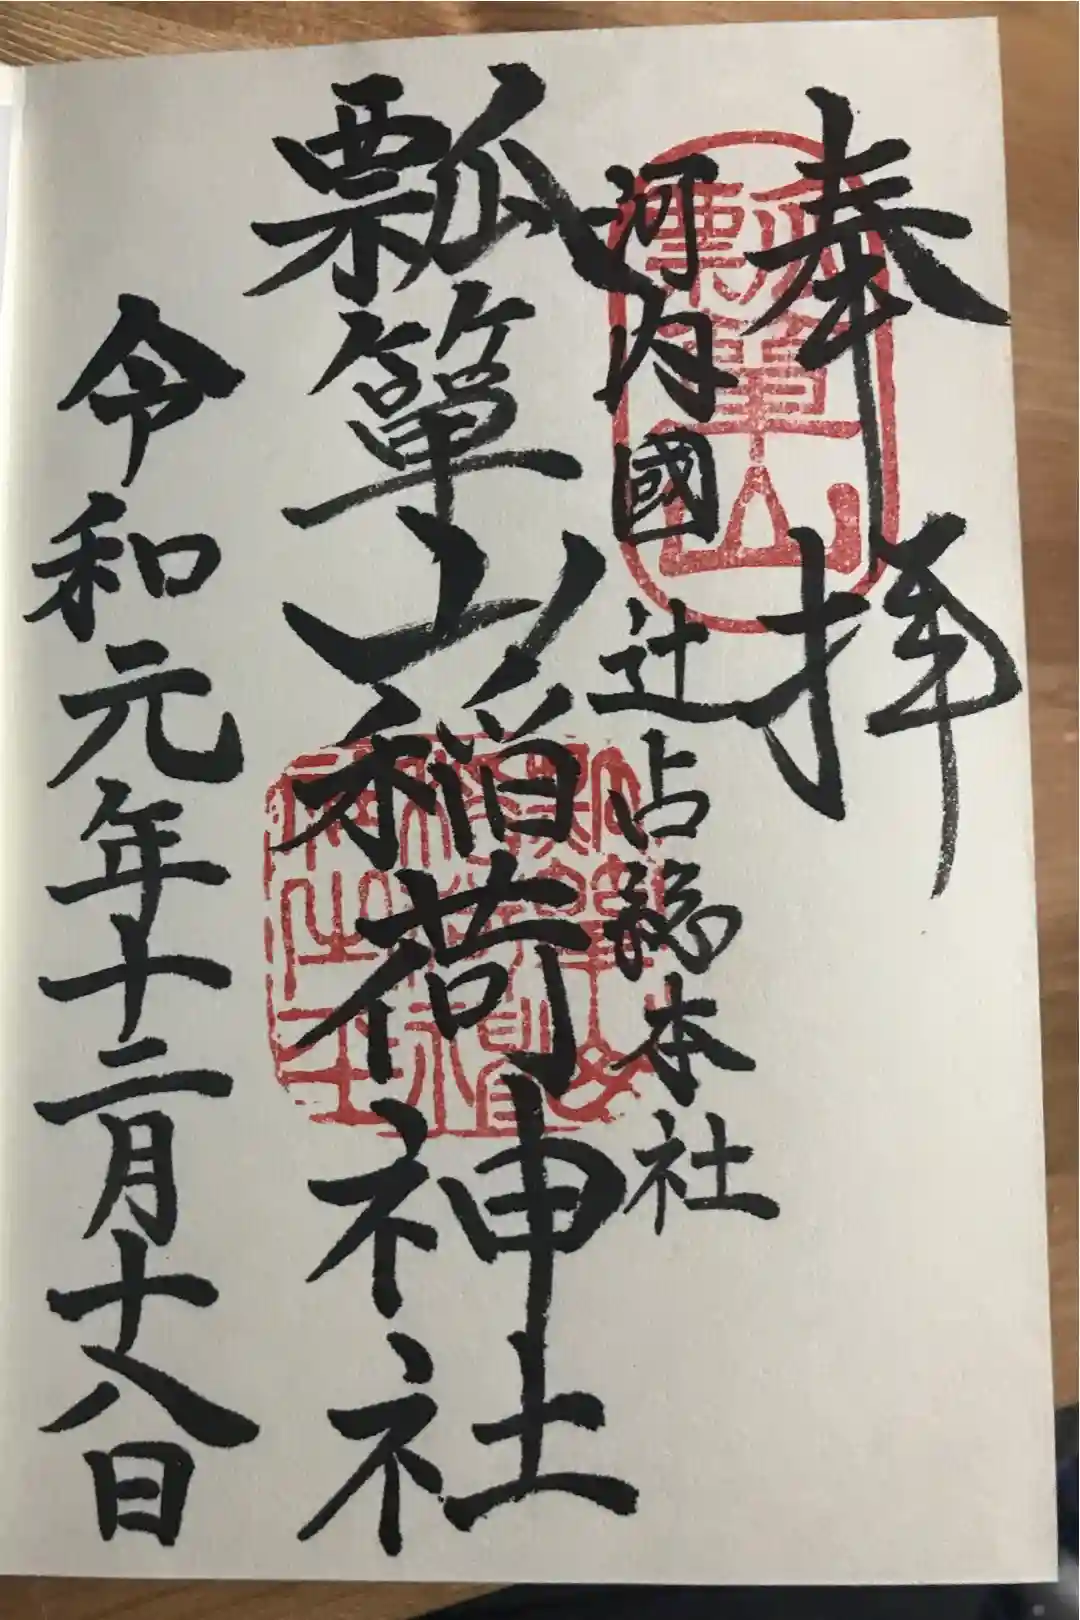 奉拝
河内國辻占総本社
瓢箪山稲荷神社
令和元年十二月十八日
瓢箪山